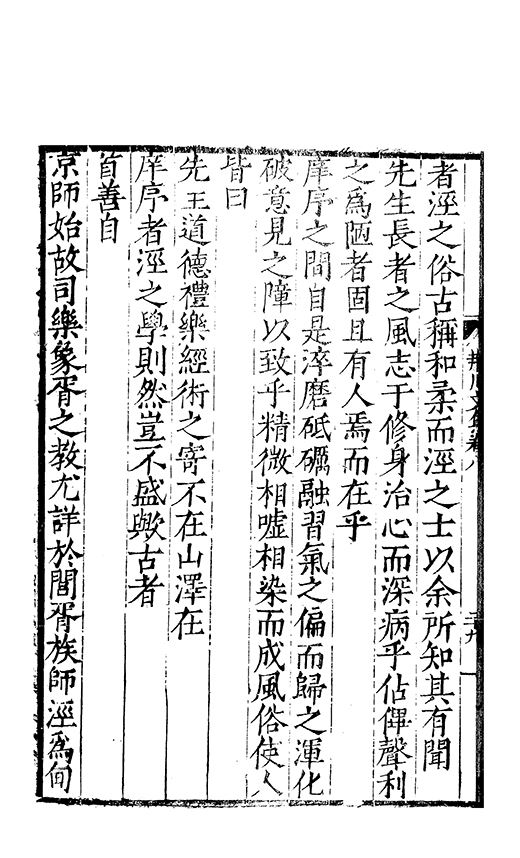 荆川文集卷八
二十九
者涇之俗古稱和柔而涇之士以余所知其有聞
先生長者之風志于修身治心而深病乎佔俾聲利
之為陋者固且有人焉而在乎
庠序之間自是淬磨砥礪融習氣之偏而歸之渾化
破意見之障以致乎精微相噓相染而成風俗使人
皆曰
先王道德禮樂經術之寄不在山澤在
庠序者涇之學則然豈不盛歟古者
首善自
京師始故司樂象胥之教尤詳於閭胥族師涇為甸